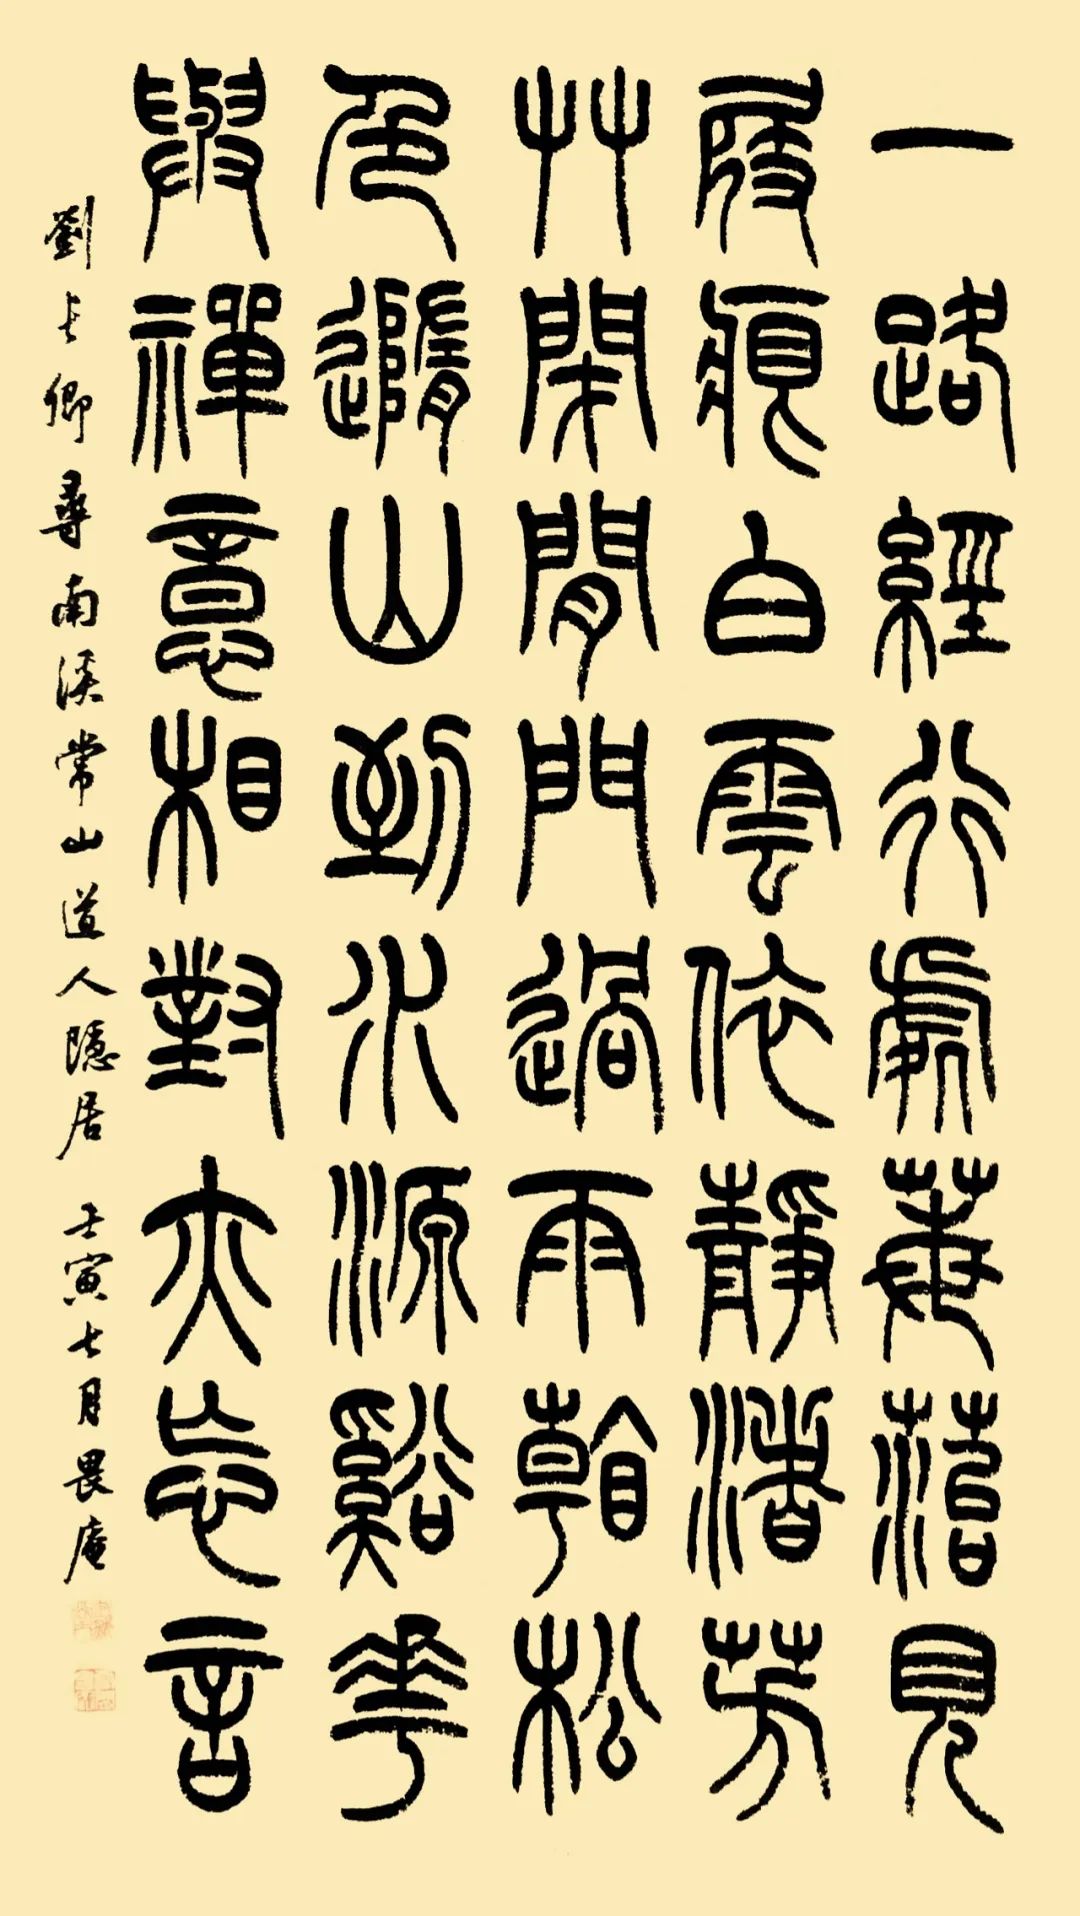 一路經行處莓菭見
屐痕白雲依靜渚芳
艸閉閒門過雨看松
色隨山到水源谿華
與禪意相對亦忘言
劉長卿尋南溪常山道人隱居 壬寅七月畏庵